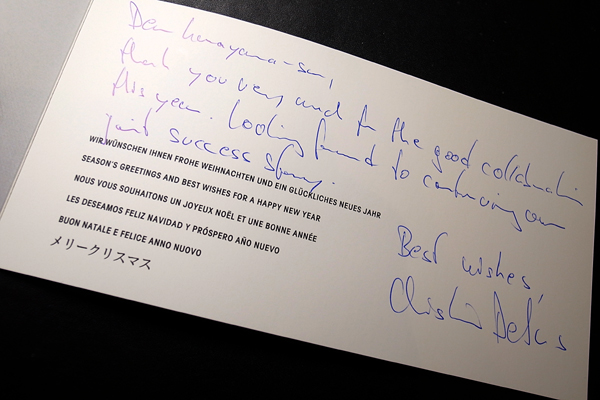 Dear
thank you very much for the good collaboration
this year. Looking forward to continuing our
joint success story.
WIR WÜNSCHEN IHNEN FROHE WEIHNACHTEN UND EIN GLÜCKLICHES NEUES JAHR
SEASON'S GREETINGS AND BEST WISHES FOR A HAPPY NEW YEAR
NOUS VOUS SOUHAITONS UN JOYEUX NOËL ET UNE BONNE ANNÉE
LES DESEAMOS FELIZ NAVIDAD Y PRÓSPERO AÑO NUEVO
BUON NATALE E FELICE ANNO NUOVO
メリークリスマス
Best wishes,